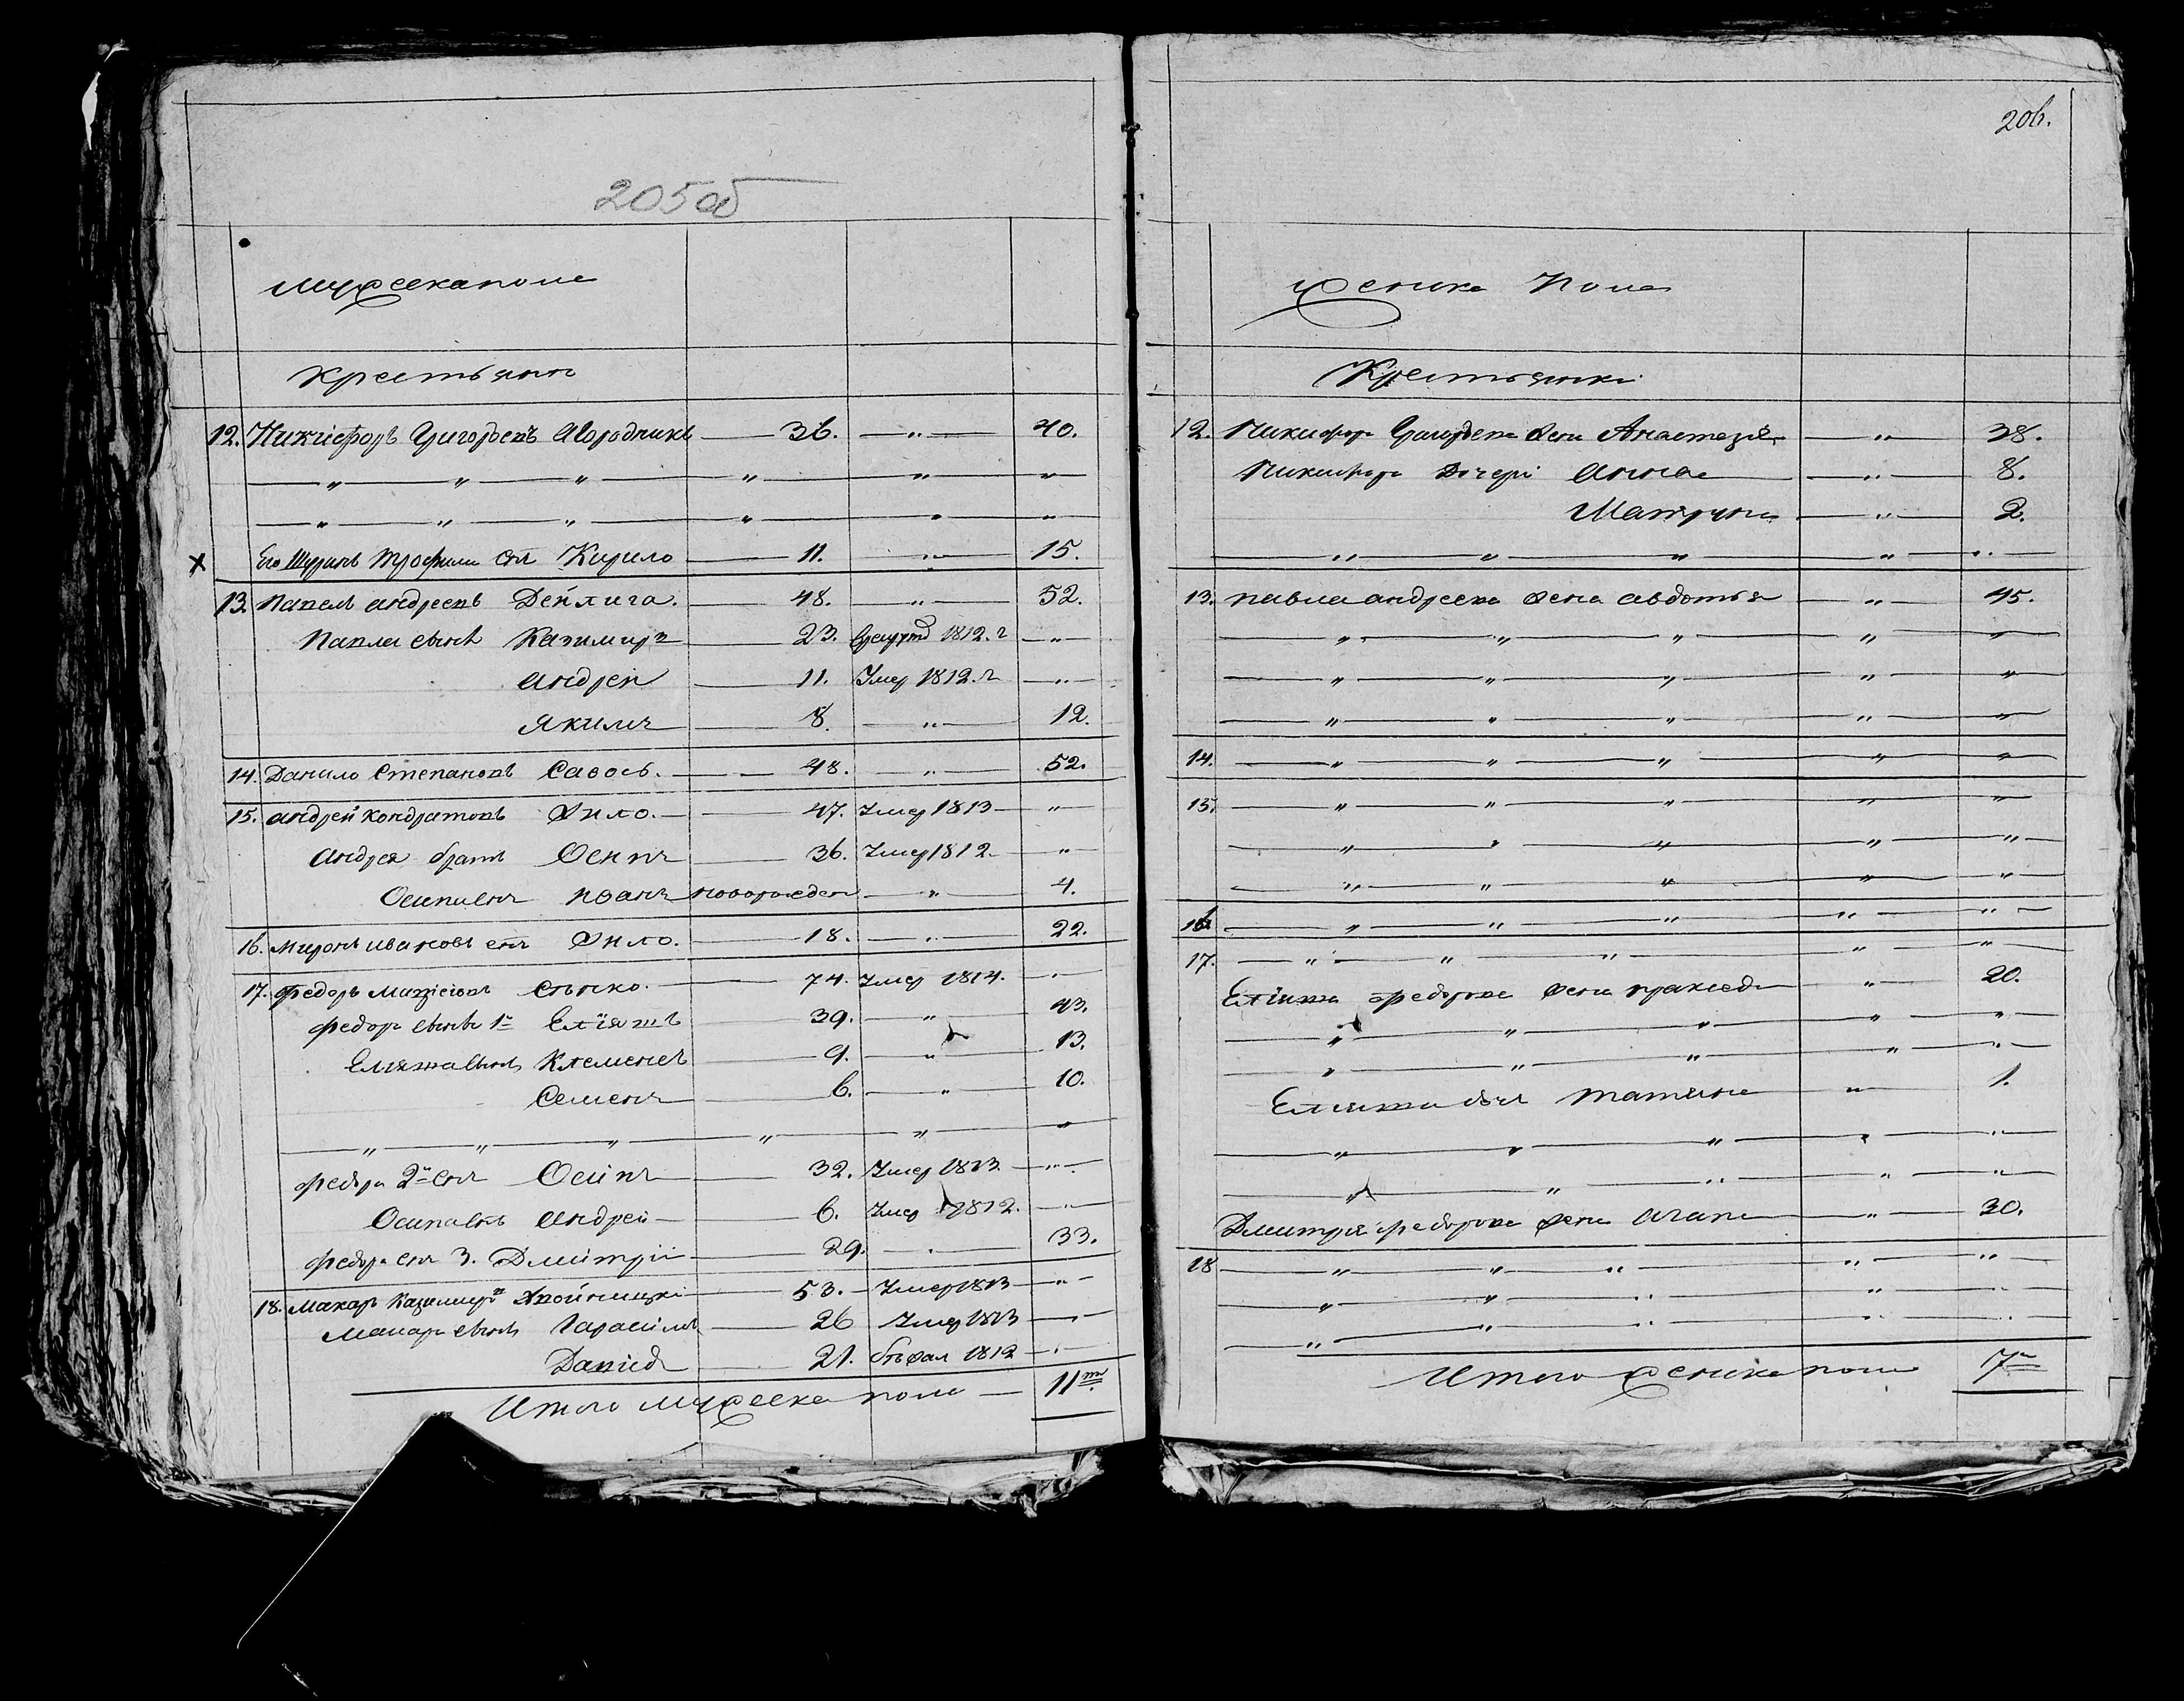 205об
Мужеска пола
Крестьяне
12. Никифоръ Григорьевъ Агородникъ — 36. — „ — 40.
— „ — „ — „ — „ — „ — „
— „ — „ — „ — „ — „ — „
х Его Шуринъ Трофима снъ Кирило — 11. — „ — 15.
13. Павелъ андреевъ Дейлига. — 48. — „ — 52.
Павла Сыновья Казимиръ — 23. 1812. г — „ —
андрей — 11. Умер 1812. г — „ —
Якимъ — 8. — „ — 12.
14. Данило Степановъ Савось. — 48. — „ — 52.
15. андрей Кондратовъ — 47. Умер 1813 — „
Андрея братъ Осипъ — 36. Умер 1812. — „
Осипа Снъ Иванъ новорожден — „ — 4.
16. Миронъ Ивановъ снъ — 18. — „ — 22.
17. Федоръ — 74. Умер 1814. — „
Федора Сыновья 1й Еліяшъ — 39. — „ — 43.
Еліяша Сыновья Клеменсъ — 9. — „ — 13.
Семенъ — 6. — „ — 10.
— „ — „ — „ — „ — „ — „
Федора 2й Снъ Осипъ — 32. Умер 1813 — „ —
Осипа Снъ андрей — 6. Умер 1812. — „ —
Федора снъ 3. Дмитрій — 29. — „ — 33.
18. Макаръ Казимировъ Хвойницкі — 53. — Умер 1813 — „ —
Макара Сыновья Гарасимъ — 26 Умер 1813 — „ —
Давидъ — 21. бѣжал 1812 — „ —
Итого мужеска пола — 11ть
206.
Женска Пола
Крестьянки
12. Никифора Григорьева жена Анастазія — „ — 38.
Никифора Дочери Анна — „ — 8.
Матруна — „ — 2.
— „ — „ — „ — „ — „
13. Павла андреева жена авдотья — „ — 45.
— „ — „ — „ — „ — „
— „ — „ — „ — „ — „
— „ — „ — „ — „ — „
14. — „ — „ — „ — „ — „
15. — „ — „ — „ — „ — „
— „ — „ — „ — „ — „
— „ — „ — „ — „ — „
16. — „ — „ — „ — „ — „
17. — „ — „ — „ — „ — „
Еліяша Федорова жена праксед — „ — 20.
— „ — „ — „ — „ — „
— „ — „ — „ — „ — „
Еліяша дочь Татяна — „ — 1.
— „ — „ — „ — „ — „
— „ — „ — „ — „ — „
Дмитрія Федорова жена Агапа — „ — 30.
18 — „ — „ — „ — „ — „
— „ — „ — „ — „ — „
— „ — „ — „ — „ — „
Итого женска пола 7ь